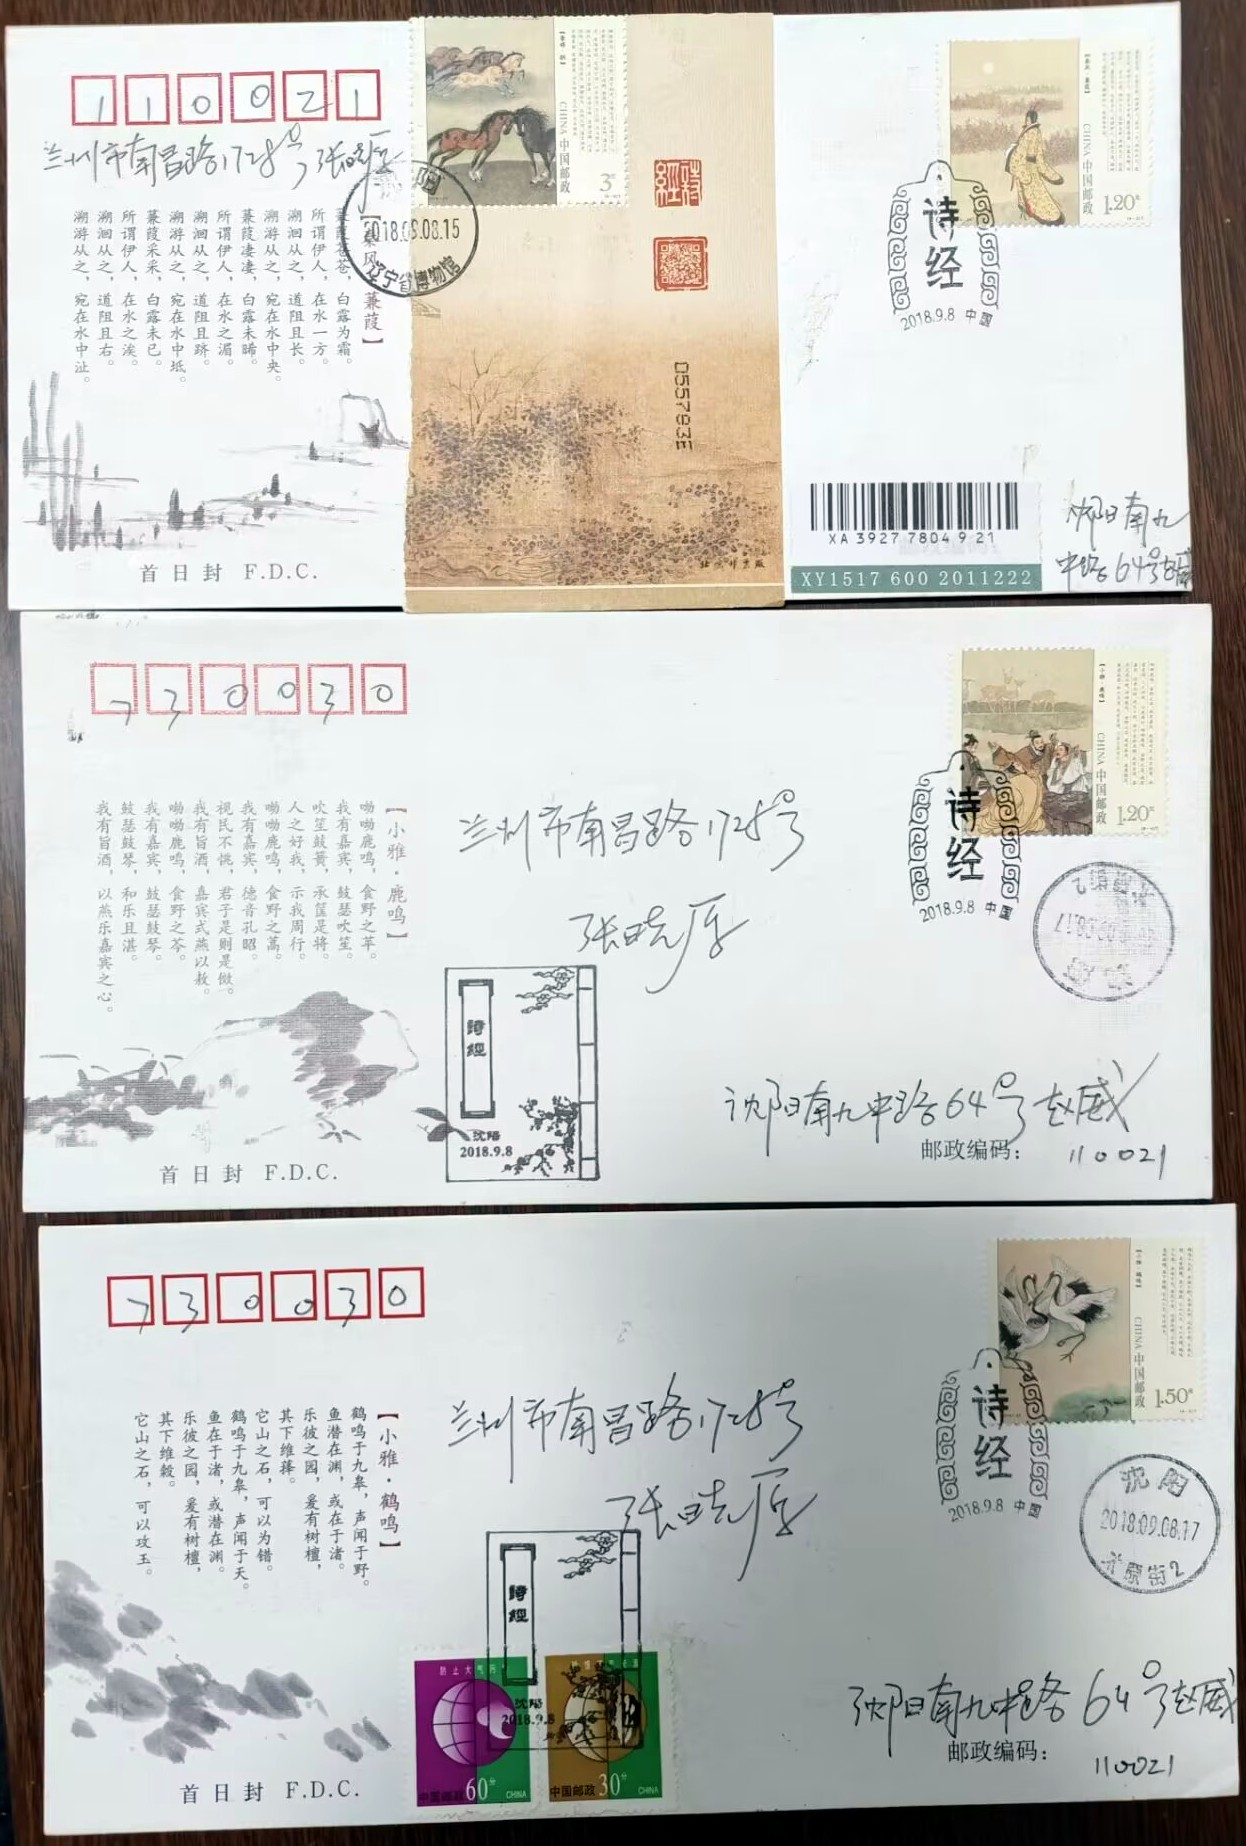 110021
兰州市南昌路1728号 张晓厚
【秦风·蒹葭】
蒹葭苍苍，白露为霜。
所谓伊人，在水一方。
溯洄从之，道阻且长。
溯游从之，宛在水中央。
蒹葭凄凄，白露未晞。
所谓伊人，在水之湄。
溯洄从之，道阻且跻。
溯游从之，宛在水中坻。
蒹葭采采，白露未已。
所谓伊人，在水之涘。
溯洄从之，道阻且右。
溯游从之，宛在水中沚。
首日封 F.D.C.
沈阳
2018.09.08.15
辽宁省博物馆
CHINA 中国邮政
3元
詩經
0557935
CHINA 中国邮政
1.20元
诗经
2018.9.8 中国
XA 3927 7804 9 21
XY1517 600 2011222
沈阳南九
中路64号赵威
730030
【小雅·鹿鸣】
呦呦鹿鸣，食野之苹。
我有嘉宾，鼓瑟吹笙。
吹笙鼓簧，承筐是将。
人之好我，示我周行。
呦呦鹿鸣，食野之蒿。
我有嘉宾，德音孔昭。
视民不恌，君子是则是傚。
我有旨酒，嘉宾式燕以敖。
呦呦鹿鸣，食野之芩。
我有嘉宾，鼓瑟鼓琴。
鼓瑟鼓琴，和乐且湛。
我有旨酒，以燕乐嘉宾之心。
首日封 F.D.C.
兰州市南昌路1728号
张晓厚
詩經
沈阳
2018.9.8
CHINA 中国邮政
1.20元
诗经
2018.9.8 中国
沈阳南九中路64号赵威
邮政编码： 110021
730030
【小雅·鹤鸣】
鹤鸣于九皋，声闻于野。
鱼潜在渊，或在于渚。
乐彼之园，爰有树檀，
其下维萚。
它山之石，可以为错。
鹤鸣于九皋，声闻于天。
鱼在于渚，或潜在渊。
乐彼之园，爰有树檀，
其下维榖。
它山之石，可以攻玉。
首日封 F.D.C.
兰州市南昌路1728号
张晓厚
詩經
沈阳
2018.9.8
中国邮政 60分 CHINA
中国邮政 30分 CHINA
CHINA 中国邮政
1.50元
诗经
2018.9.8 中国
沈阳
2018.09.08.17
太原街2
沈阳南九中路64号赵威
邮政编码： 110021